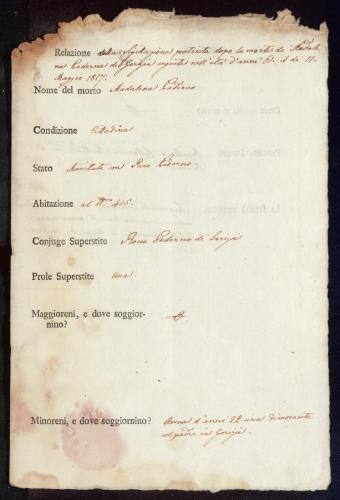 Relazione della suggellazione praticata dopo la morte di Madale-
na Paderno di Gorizia seguita nell' età d'anni 61. il dì 11.
Maggio 1817.
Nome del morto Madalena Paderno
Condizione Cittadina
Stato Maritata con Paderno.
Abitazione al No. 405.
Conjuge Superstite Paderno di Gorizia
Prole Superstite una.
Maggioreni, e dove soggior-
nino?
Minoreni, e dove soggiornino? Anna d'anni 22 dimorante
col padre in Gorizia.